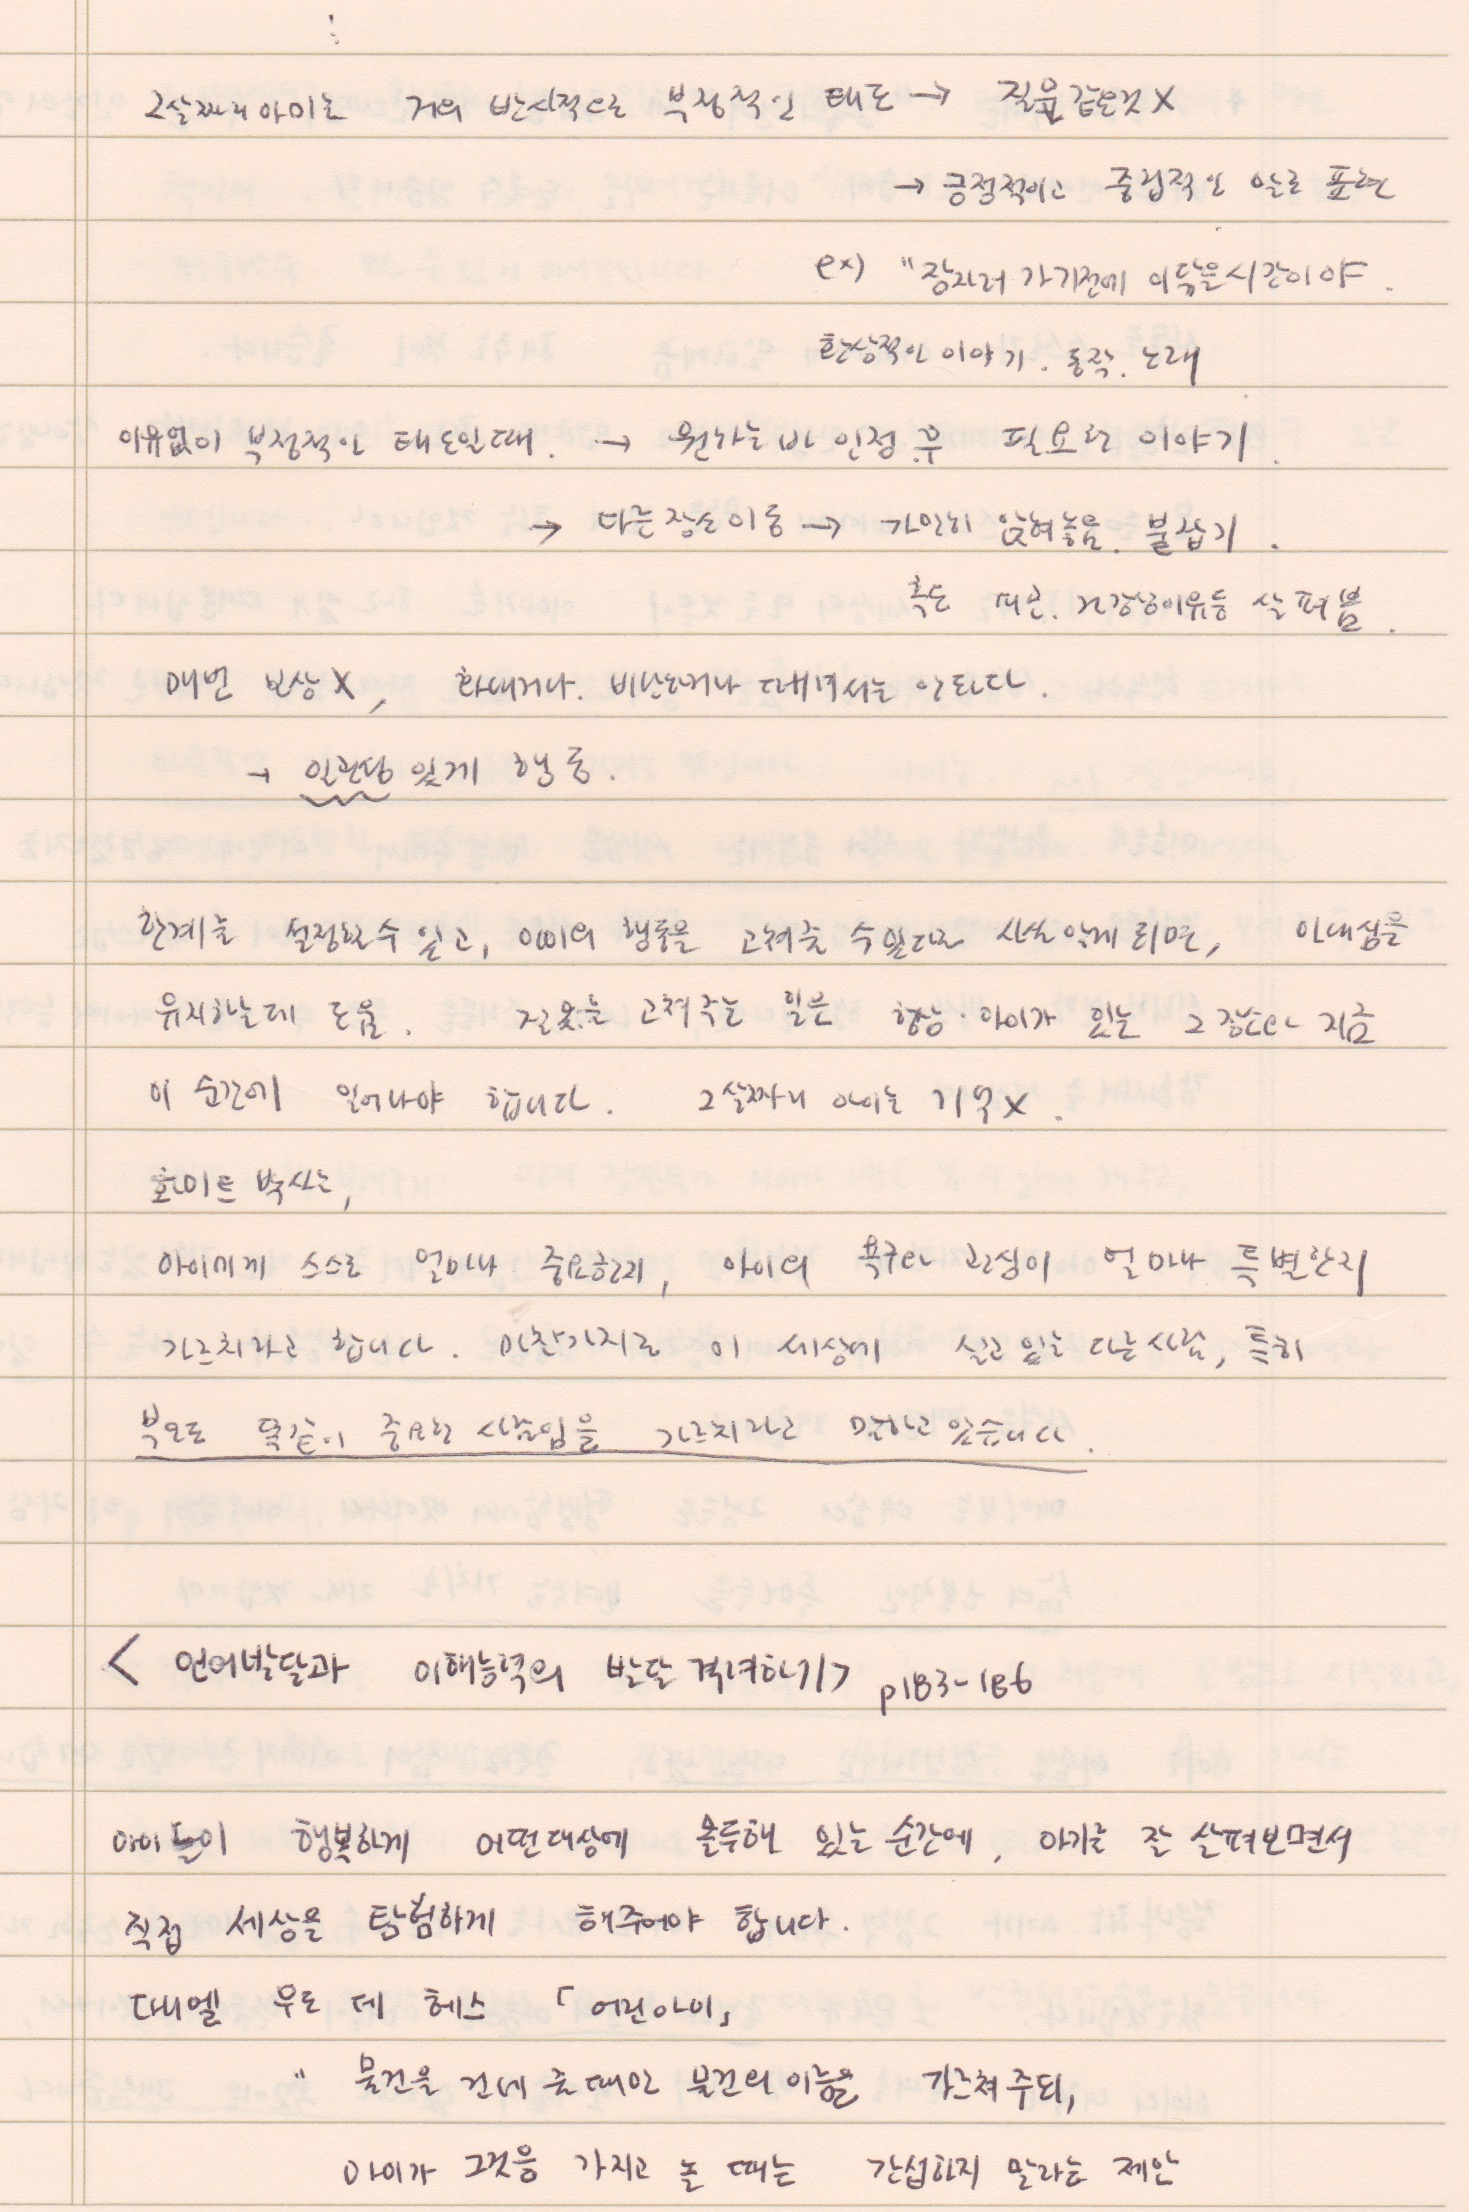 2살짜리 아이는 거의 반사적으로 부정적인 태도 → 질문같은것 X
→ 긍정적이고 중립적인 말로 표현
ex) "잠자러 가기전에 이 닦을 시간이야.
환상적인 이야기. 동작. 노래
이유없이 부정적인 태도일때. → 원하는바 인정 후 필요한 이야기.
→ 다른장소이동 → 가만히 앉혀놓음. 붙잡기.
혹은 피곤. 건강상이유등 살펴봄.
매번 보상 X, 화내거나. 비난하거나 때려서는 안된다.
→ 일관성 있게 행동.
한계를 설정할수 있고, 아이의 행동을 고쳐줄 수 있다는 사실 알게 되면, 인내심을
유지하는데 도움. 잘못을 고쳐주는 일은 항상 아이가 있는 그 장소와 지금
이 순간에 일어나야 합니다. 2살짜리 아이는 기억 X.
화이트 박사는,
아이에게 스스로 얼마나 중요한지, 아이의 욕구와 관심이 얼마나 특별한지
가르치라고 합니다. 마찬가지로 이 세상에 살고 있는 다른사람, 특히
부모도 똑같이 중요한 사람임을 가르치라고 말하고 있습니다.
< 언어발달과 이해능력의 발달 격려하기> p183-186
아이들이 행복하게 어떤대상에 몰두해 있는 순간에, 아기를 잘 살펴보면서
직접 세상을 탐험하게 해주어야 합니다.
다니엘 우도 데 헤스 「어린아이」
" 물건을 건네 줄때만 물건의 이름을 가르쳐주되,
아이가 그것을 가지고 놀 때는 간섭하지 말라는 제안